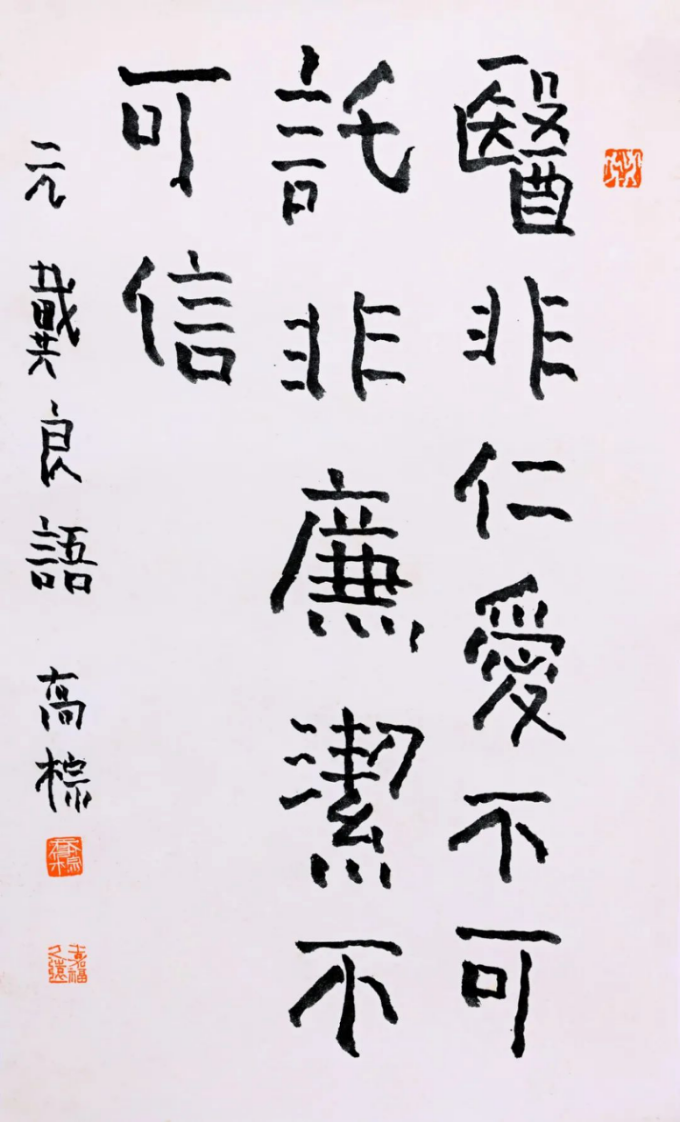 醫非仁愛不可
託非廉潔不
可信
元 戴良語 高標
嘉福